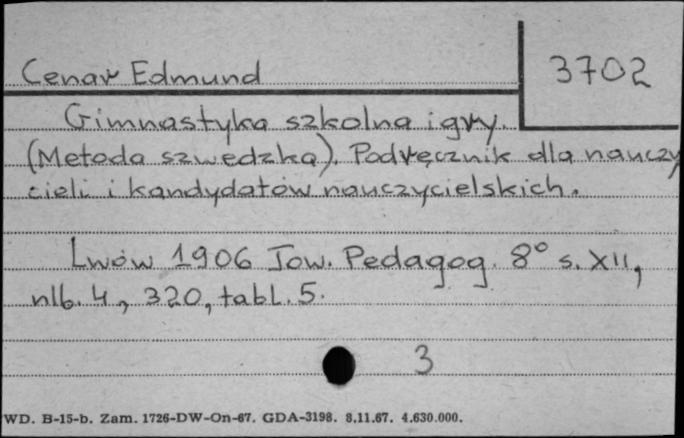 Cenar Edmund
3702
Gimnastyka szkolna i gry.
(Metoda szwedzka). Podręcznik dla nauczy
cieli i kandydatów nauczycielskich.
Lwów 1906 Tow. Pedagog. 8° s. XII,
nlb. 4, 320, tabl. 5.
3
WD. B-15-b. Zam. 1726-DW-On-67. GDA-3198. 8.11.67. 4.630.000.